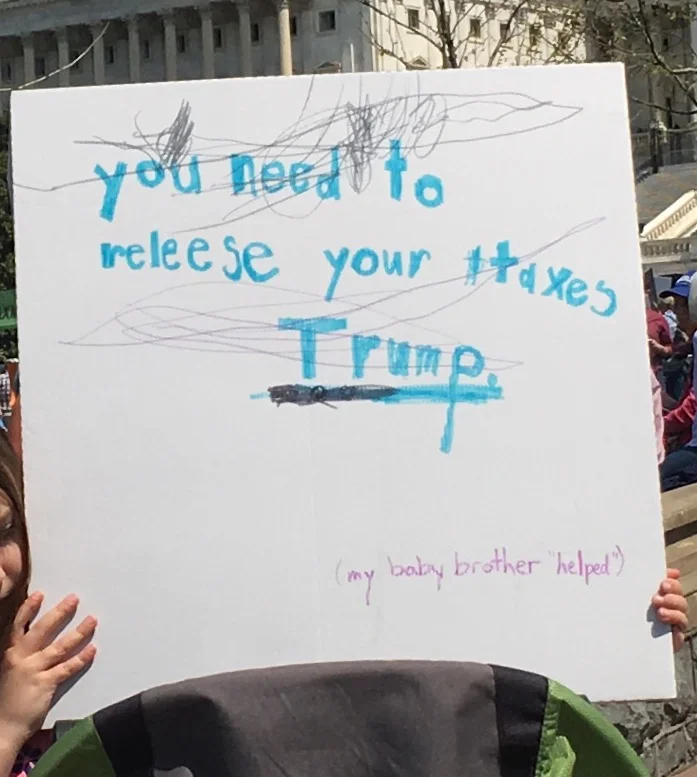 you need to
releese your taxes
Trump.
(my baby brother "helped")